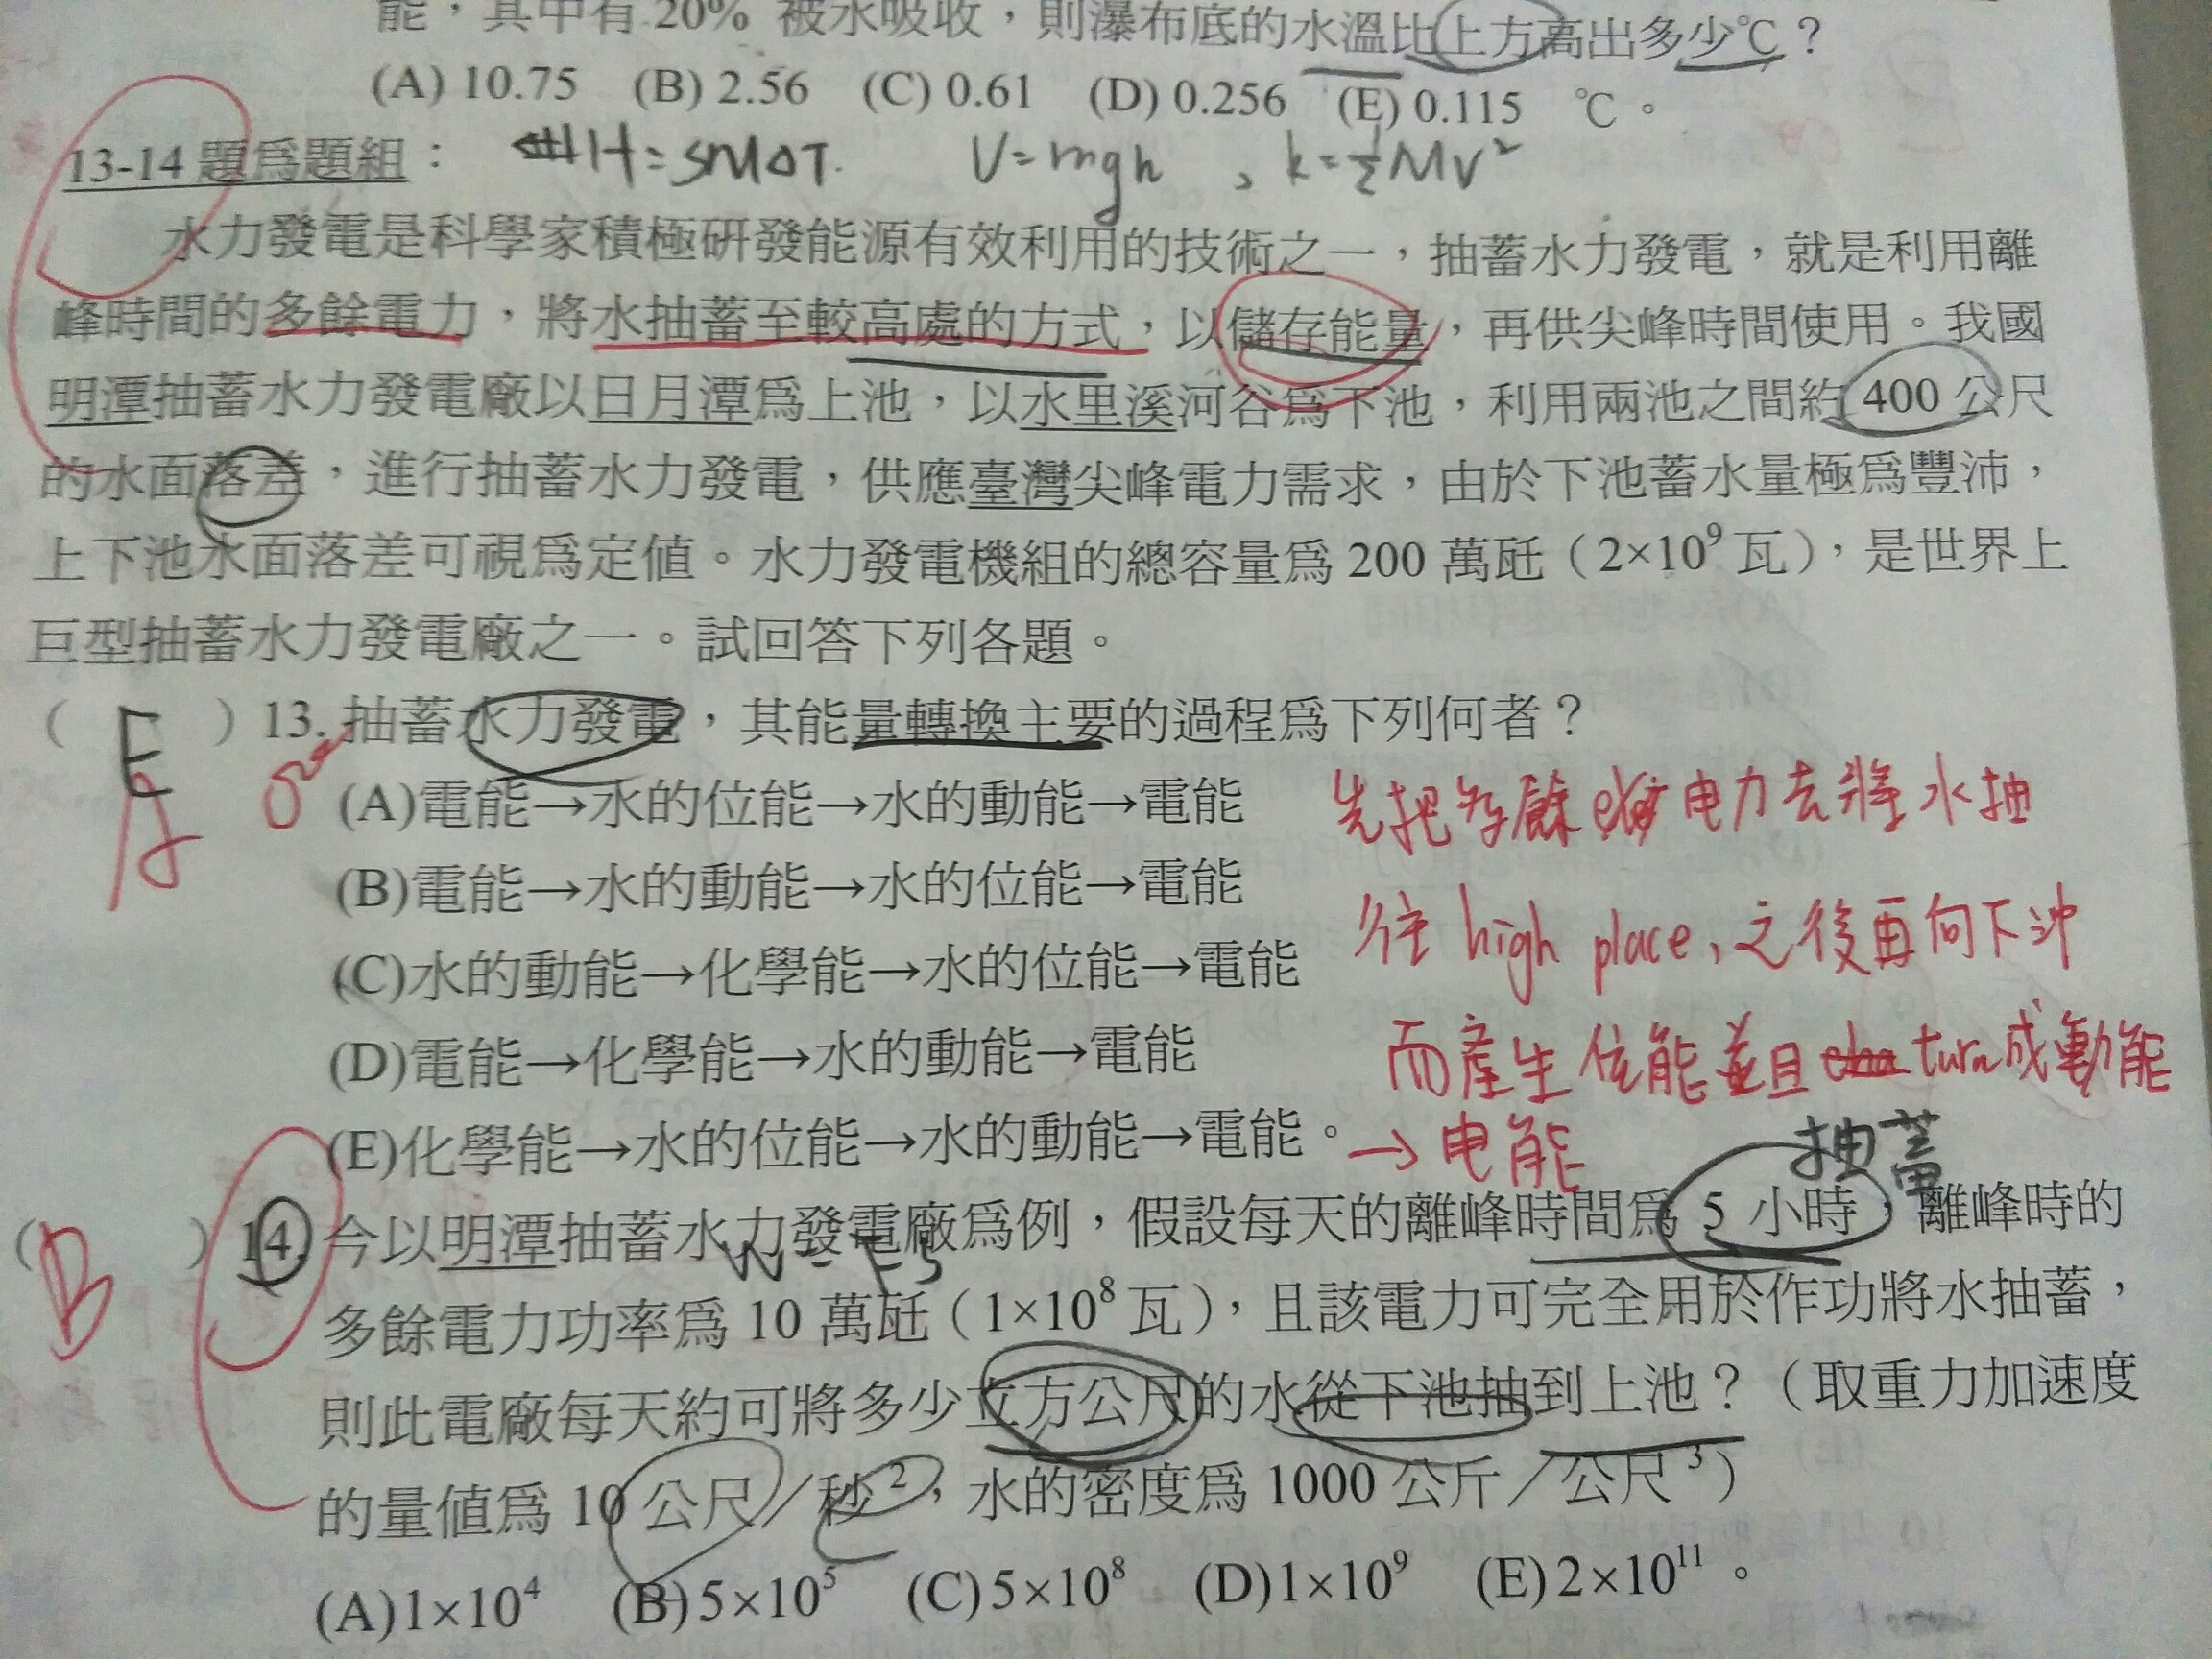 能，其中有 20% 被水吸收，則瀑布底的水溫比上方高出多少℃？
(A) 10.75 (B) 2.56 (C) 0.61 (D) 0.256 (E) 0.115 ℃。
13-14 題為題組：
H=SMΔT. U=mgh , k=½MV²
水力發電是科學家積極研發能源有效利用的技術之一，抽蓄水力發電，就是利用離
峰時間的多餘電力，將水抽蓄至較高處的方式，以儲存能量，再供尖峰時間使用。我國
明潭抽蓄水力發電廠以日月潭為上池，以水里溪河谷為下池，利用兩池之間約 400 公尺
的水面落差，進行抽蓄水力發電，供應臺灣尖峰電力需求，由於下池蓄水量極為豐沛，
上下池水面落差可視為定值。水力發電機組的總容量為 200 萬瓩（2×10⁹ 瓦），是世界上
巨型抽蓄水力發電廠之一。試回答下列各題。
( E ) 13. 抽蓄水力發電，其能量轉換主要的過程為下列何者？
A
(A)電能→水的位能→水的動能→電能
(B)電能→水的動能→水的位能→電能
(C)水的動能→化學能→水的位能→電能
(D)電能→化學能→水的動能→電能
(E)化學能→水的位能→水的動能→電能。
先把多餘电力去將水抽
往 high place, 之後再向下沖
而產生位能並且 turn 成動能
→电能
抽蓄
( B ) 14. 今以明潭抽蓄水力發電廠為例，假設每天的離峰時間為 5 小時，離峰時的
W=FS
多餘電力功率為 10 萬瓩（1×10⁸ 瓦），且該電力可完全用於作功將水抽蓄，
則此電廠每天約可將多少立方公尺的水從下池抽到上池？（取重力加速度
的量值為 10 公尺／秒²，水的密度為 1000 公斤／公尺³）
(A)1×10⁴ (B)5×10⁵ (C)5×10⁸ (D)1×10⁹ (E)2×10¹¹。